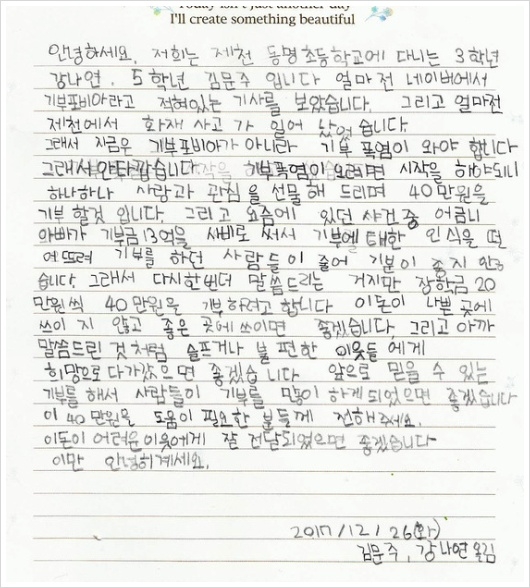 Today isn't just another day
I'll create something beautiful
안녕하세요. 저희는 제천 동명초등학교에 다니는 3학년
강나연. 5학년 김문주 입니다 얼마전 네이버에서
기부포비아라고 적혀있는 기사를 보았습니다. 그리고 얼마전
제천에서 화재 사고 가 일어 났었 습니다.
그래서 지금은 기부포비아가 아니라 기부 폭염이 와야 합니다
그래서 안타깝습니다. 기부폭염이 오려면 시작을 해야되니
하나하나 사랑과 관심을 선물해 드리며 40만원을
기부 할것 입니다. 그리고 요즘에 있던 사건중 어금니
아빠가 기부금 13억을 사비로 써서 기부에 대한 인식을 떤
어뜨려 기부를 하던 사람들이 줄어 기분이 좋지 안았
습니다. 그래서 다시한번더 말씀드리는 거지만 장학금 20
만원씩 40만원을 기부하려고 합니다 이돈이 나쁜 곳에
쓰이 지 않고 좋은 곳에 쓰이면 좋겠습니다 그리고 아까
말씀드린 것처럼 슬프거나 불편한 이웃들 에게
희망으로 다가갔으면 좋겠습 니다 앞으로 믿을 수 있는
기부를 해서 사람들이 기부를 많이 하게되었으면 좋겠습니다
이 40만원을 도움이 필요한 분들께 전해주세요.
이돈이 어려운이웃에게 잘 전달되었으면 좋겠습니다
이만 안녕히계세요.
2017/12/26(화)
김문주, 강나연올림